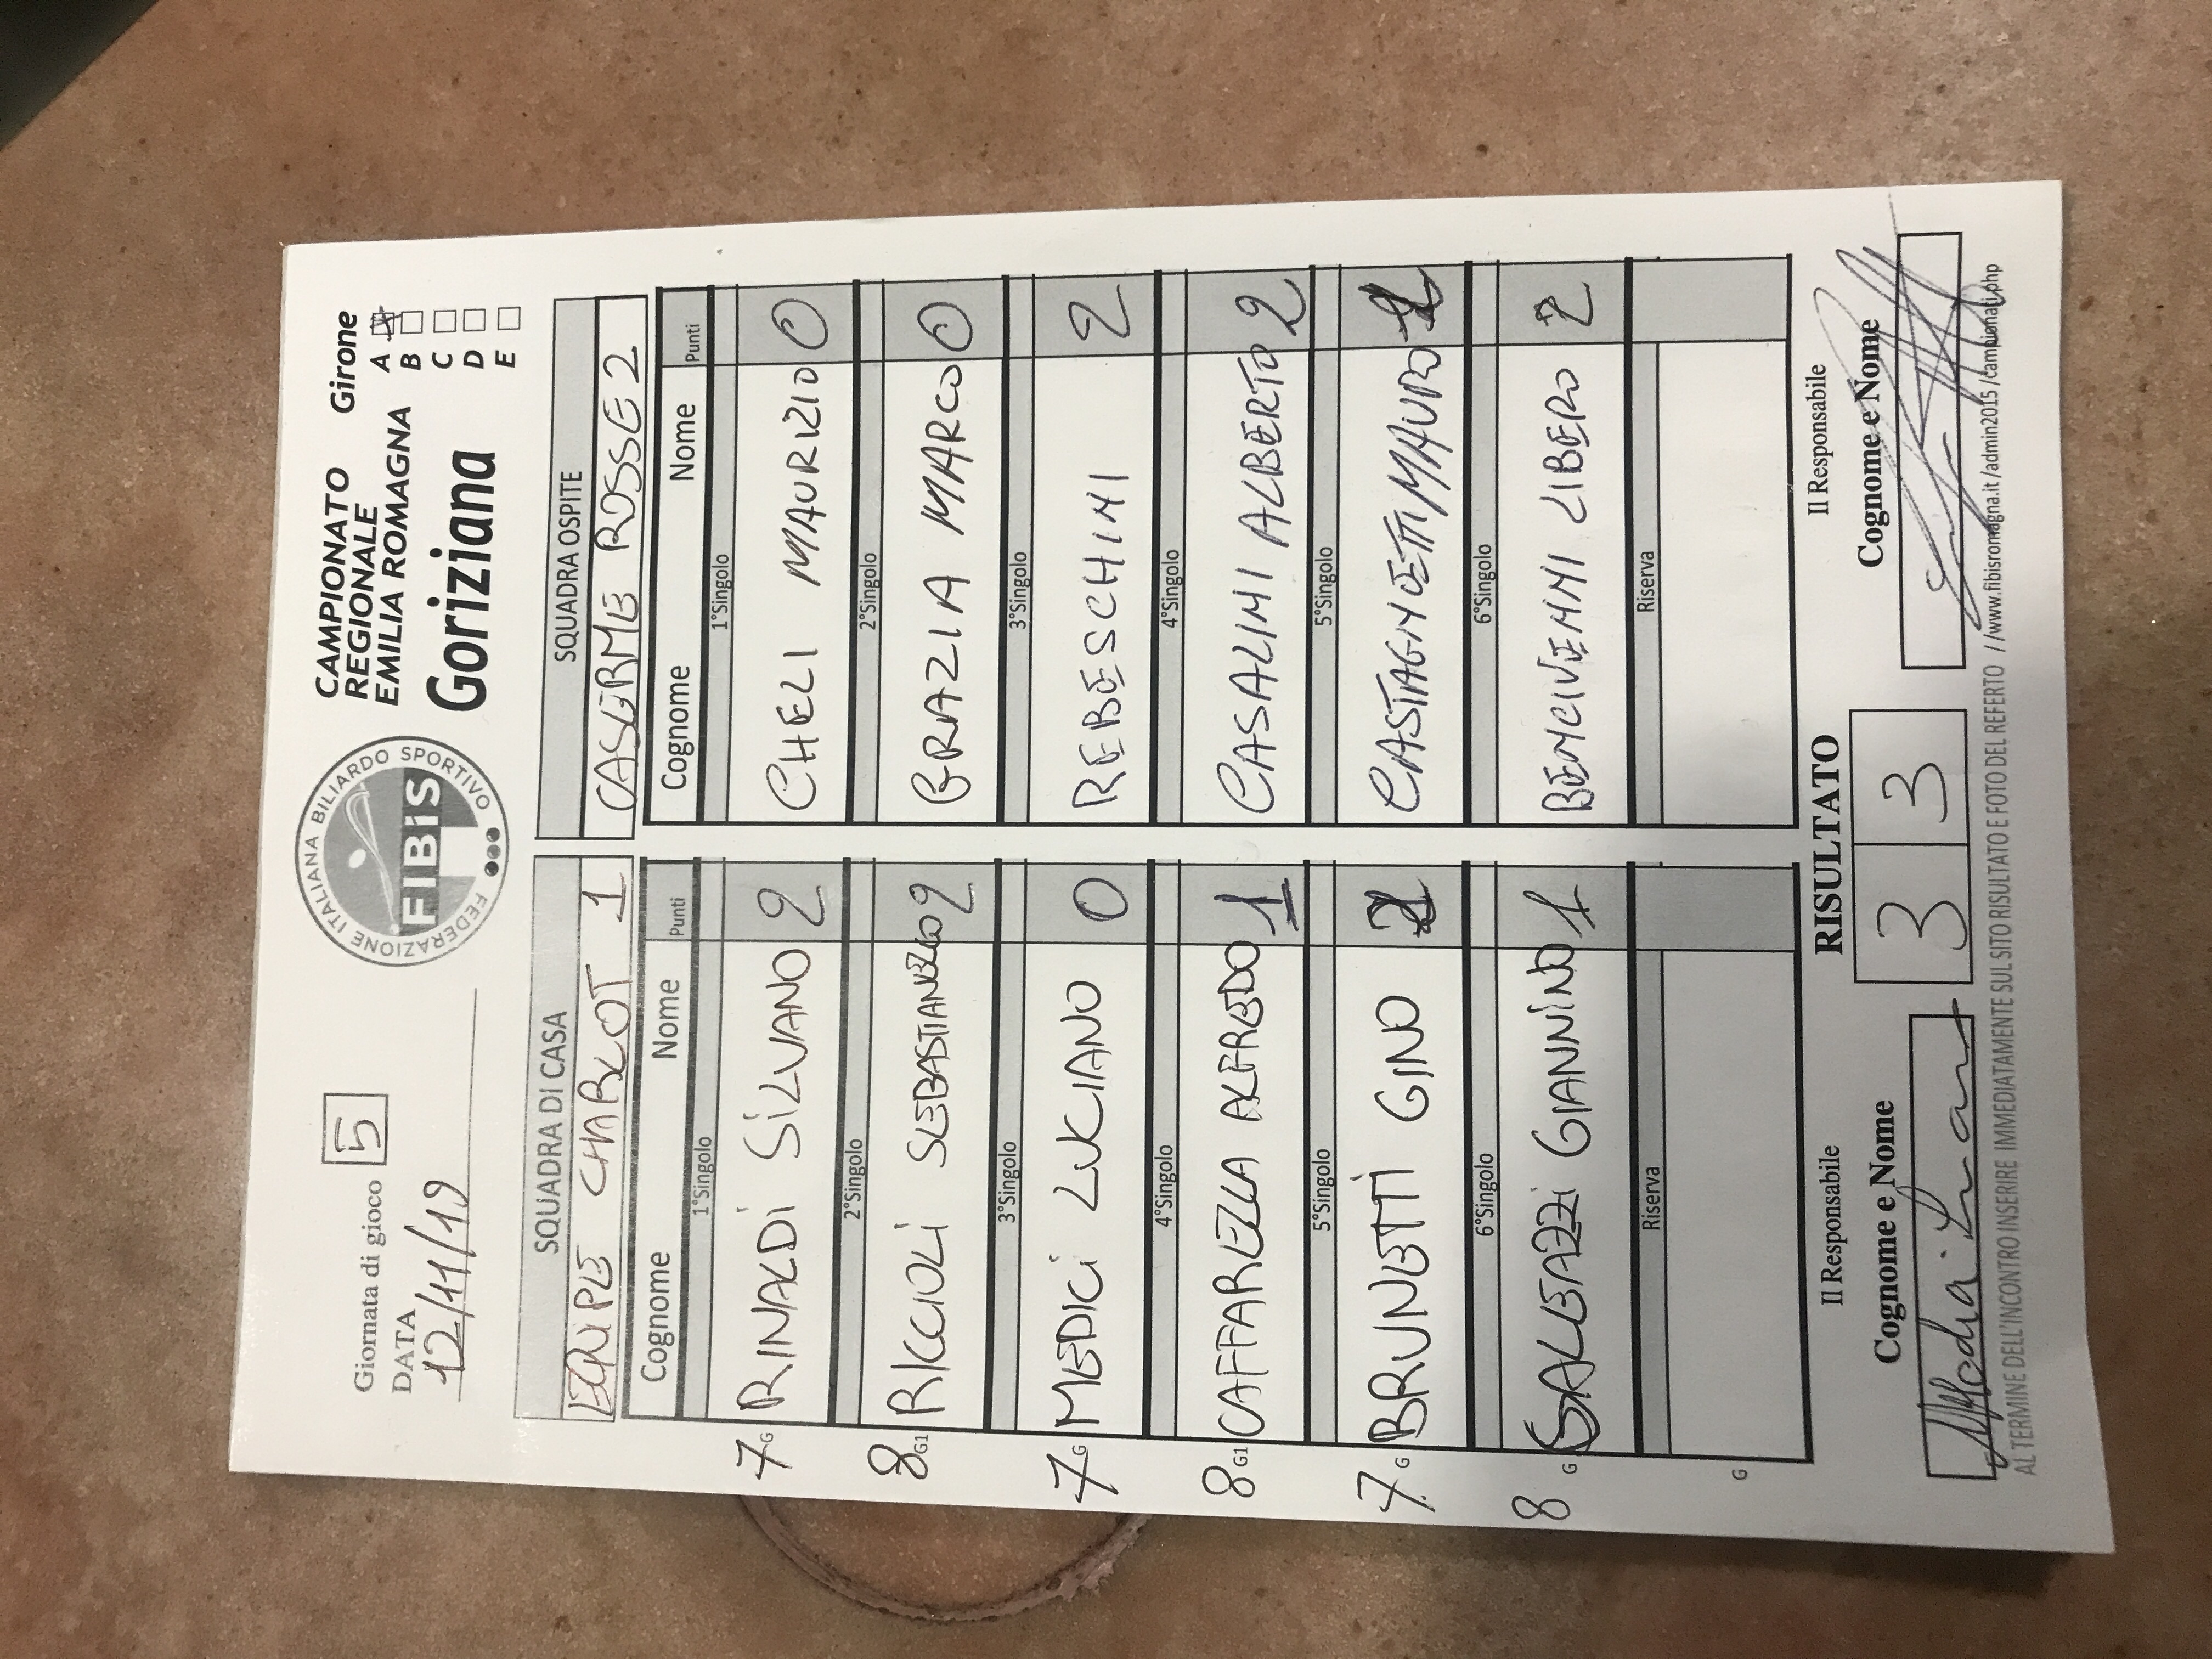 Giornata di gioco 5
DATA
12/11/19
FEDERAZIONE ITALIANA BILIARDO SPORTIVO
FIBiS
CAMPIONATO
REGIONALE
EMILIA ROMAGNA
Goriziana
Girone
A
B
C
D
E
SQUADRA DI CASA SQUADRA OSPITE
EQUIPE CHARLOT 1 CASERME ROSSE 2
Cognome Nome Punti Cognome Nome Punti
1°Singolo 1°Singolo
7 G RINALDI SILVANO 2 CHELI MAURIZIO 0
2°Singolo 2°Singolo
8 G1 RICCIOLI SEBASTIANO 2 GRAZIA MARCO 0
3°Singolo 3°Singolo
7 G MEDICI LUCIANO 0 REBESCHINI 2
4°Singolo 4°Singolo
8 G1 CAFFARELLA ALFREDO 1 CASALINI ALBERTO 2
5°Singolo 5°Singolo
7 G BRUNETTI GINO CASTAGNOETTI MAURO
6°Singolo 6°Singolo
8 G GALLEAZZI GIANNINO 1 BENCIVENNI LIBERO 2
Riserva Riserva
G
Il Responsabile RISULTATO Il Responsabile
Cognome e Nome 3 3 Cognome e Nome
AL TERMINE DELL'INCONTRO INSERIRE IMMEDIATAMENTE SUL SITO RISULTATO E FOTO DEL REFERTO //www.fibisromagna.it /admin2015 /campionati.php